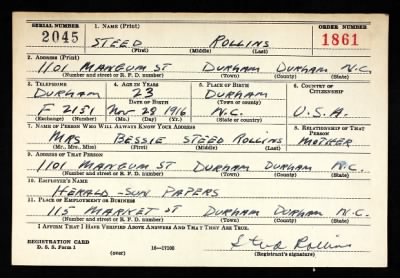 SERIAL NUMBER 1. NAME (Print) ORDER NUMBER
2045 STEED ROLLINS 1861
(First) (Middle) (Last)
2. ADDRESS (Print)
1101 MANGUM ST DURHAM DURHAM N.C.
(Number and street or R. F. D. number) (Town) (County) (State)
3. TELEPHONE 4. AGE IN YEARS 5. PLACE OF BIRTH 6. COUNTRY OF CITIZENSHIP
DURHAM 23 DURHAM
DATE OF BIRTH (Town or county)
F 2151 Nov 28 1916 N.C. U.S.A.
(Exchange) (Number) (Mo.) (Day) (Yr.) (State or country)
7. NAME OF PERSON WHO WILL ALWAYS KNOW YOUR ADDRESS 8. RELATIONSHIP OF THAT PERSON
MRS BESSIE STEED ROLLINS MOTHER
(Mr., Mrs., Miss) (First) (Middle) (Last)
9. ADDRESS OF THAT PERSON
1101 MANGUM ST DURHAM DURHAM N.C.
(Number and street or R. F. D. number) (Town) (County) (State)
10. EMPLOYER'S NAME
HERALD-SUN PAPERS
11. PLACE OF EMPLOYMENT OR BUSINESS
115 MARKET ST DURHAM DURHAM N.C.
(Number and street or R. F. D. number) (Town) (County) (State)
I AFFIRM THAT I HAVE VERIFIED ABOVE ANSWERS AND THAT THEY ARE TRUE.
REGISTRATION CARD Steed Rollins
D. S. S. Form 1 (over) 16—17105 (Registrant's signature)